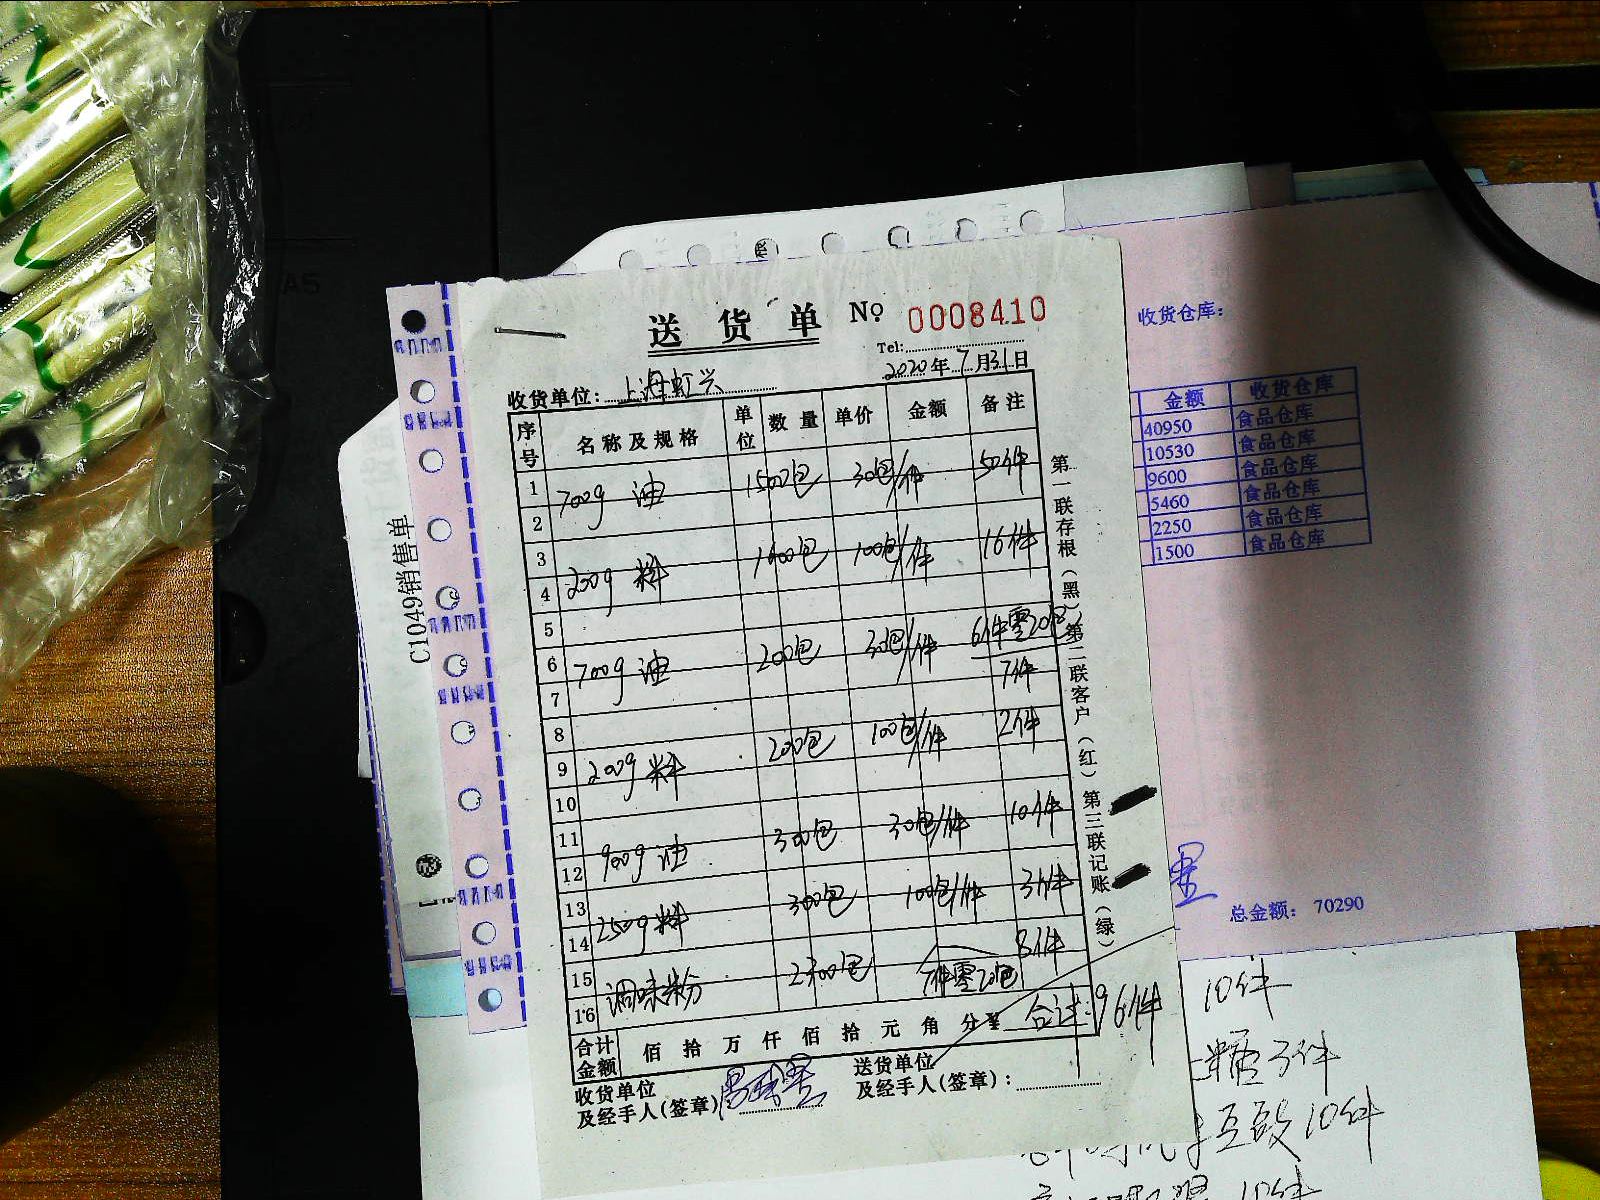 送货单 No 0008410
Tel:
2020年7月31日
收货单位: 上海虹兴
序号 名称及规格 单位 数量 单价 金额 备注
1 700g 油 1500包 30包/件 50件
2
3
4 200g 料 1600包 100包/件 16件
5
6 700g 油 200包 30包/件 6件零20包
7 7件
8
9 200g 料 200包 100包/件 2件
10
11
12 900g 油 300包 30包/件 10件
13
14 250g 料 300包 100包/件 3件
15 8件
16 调味粉 2300包 件零20包
合计:96件
合计金额 佰 拾 万 仟 佰 拾 元 角 分
收货单位及经手人(签章)
送货单位及经手人(签章):
第一联存根(黑)第二联客户(红)第三联记账(绿)
C1049销售单
收货仓库:
金额 收货仓库
40950 食品仓库
10530 食品仓库
9600 食品仓库
5460 食品仓库
2250 食品仓库
1500 食品仓库
总金额: 70290
10件
糖3件
豆豉10件
10件
A5